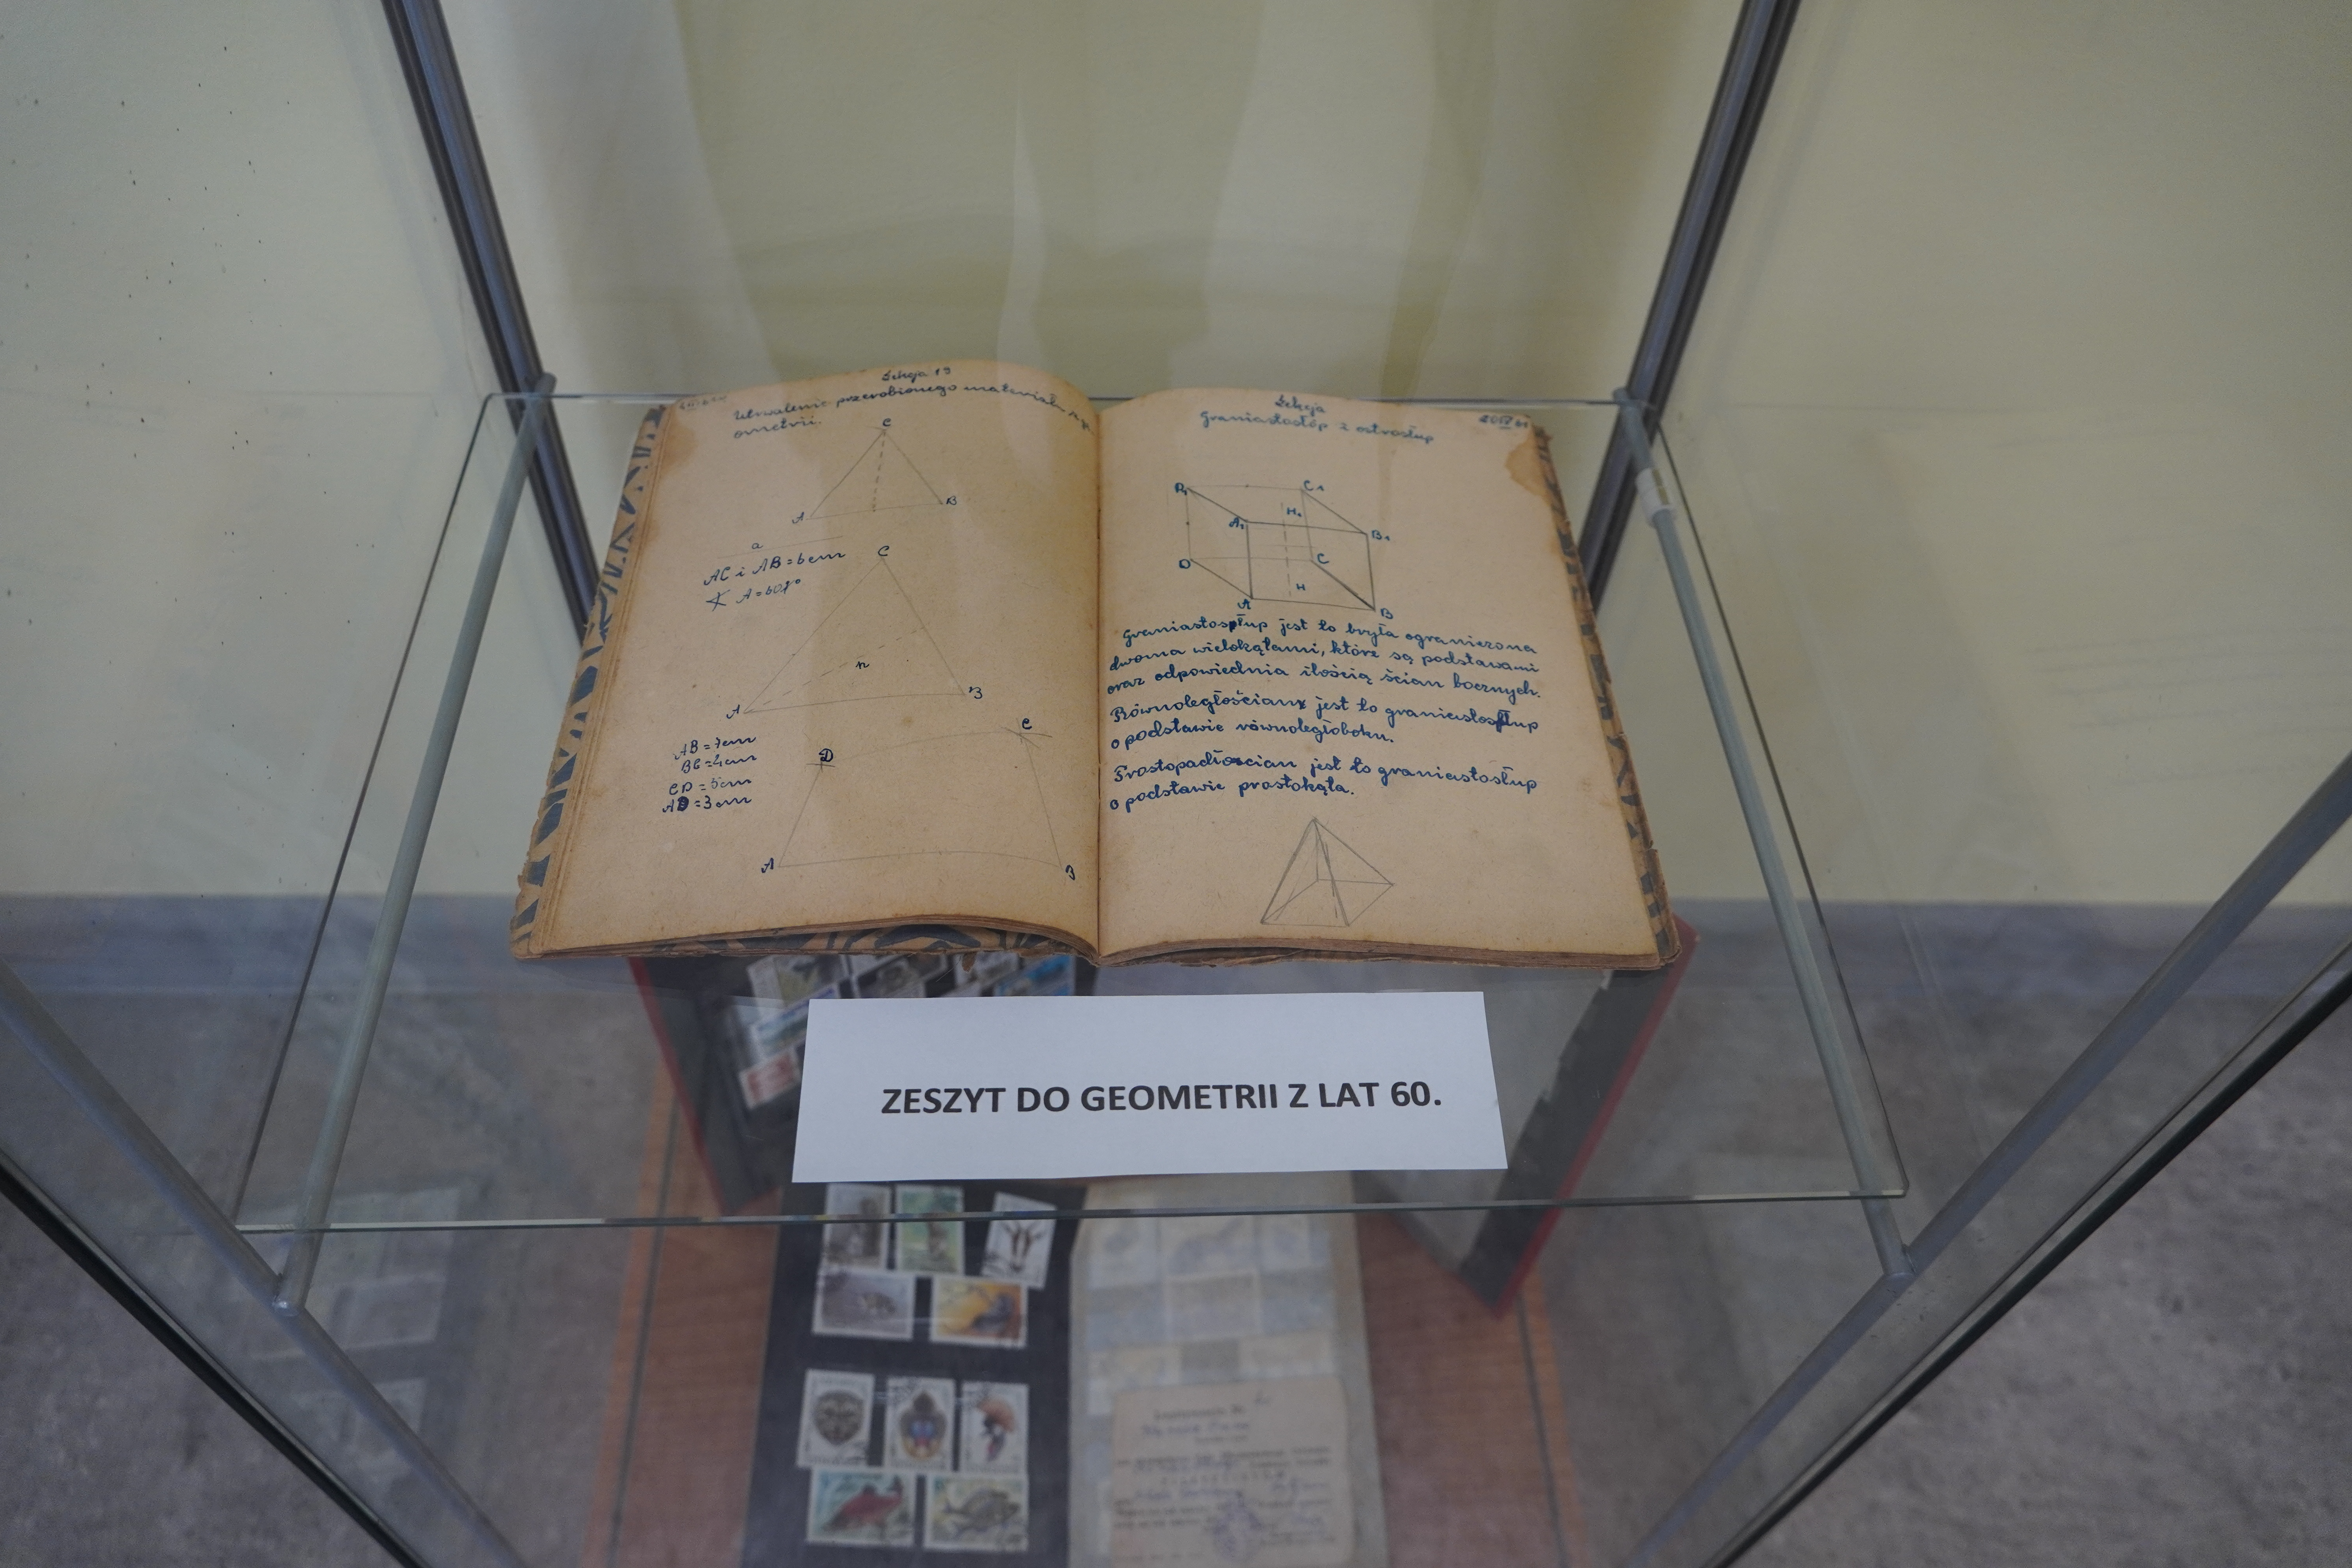 Lekcja 19
Utrwalenie przerobionego materiału z ge
ometrii.
C
A
B
a
AC i AB = 6 cm
∢ A = 60°
C
h
A
B
AB = 7cm
BC = 4cm
CD = 5cm
AD = 3cm
D
C
A
B
Lekcja
Graniastosłóp i ostrosłup
D₁
C₁
A₁
H₁
B₁
D
C
H
A
B
Graniastosłup jest to bryła ograniczona
dwoma wielokątami, które są podstawami
oraz odpowiednia ilością ścian bocznych.
Równoległościan jest to graniastosłup
o podstawie równoległoboku.
Prostopadłościan jest to graniastosłup
o podstawie prostokąta.
ZESZYT DO GEOMETRII Z LAT 60.